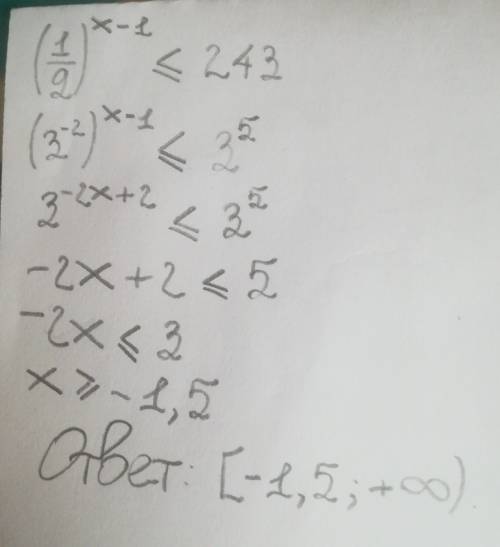 (1/9)^(x-1) ≤ 243
(3^(-2))^(x-1) ≤ 3^5
3^(-2x+2) ≤ 3^5
-2x+2 ≤ 5
-2x ≤ 3
x ≥ -1,5
Ответ: [-1,5; +∞)